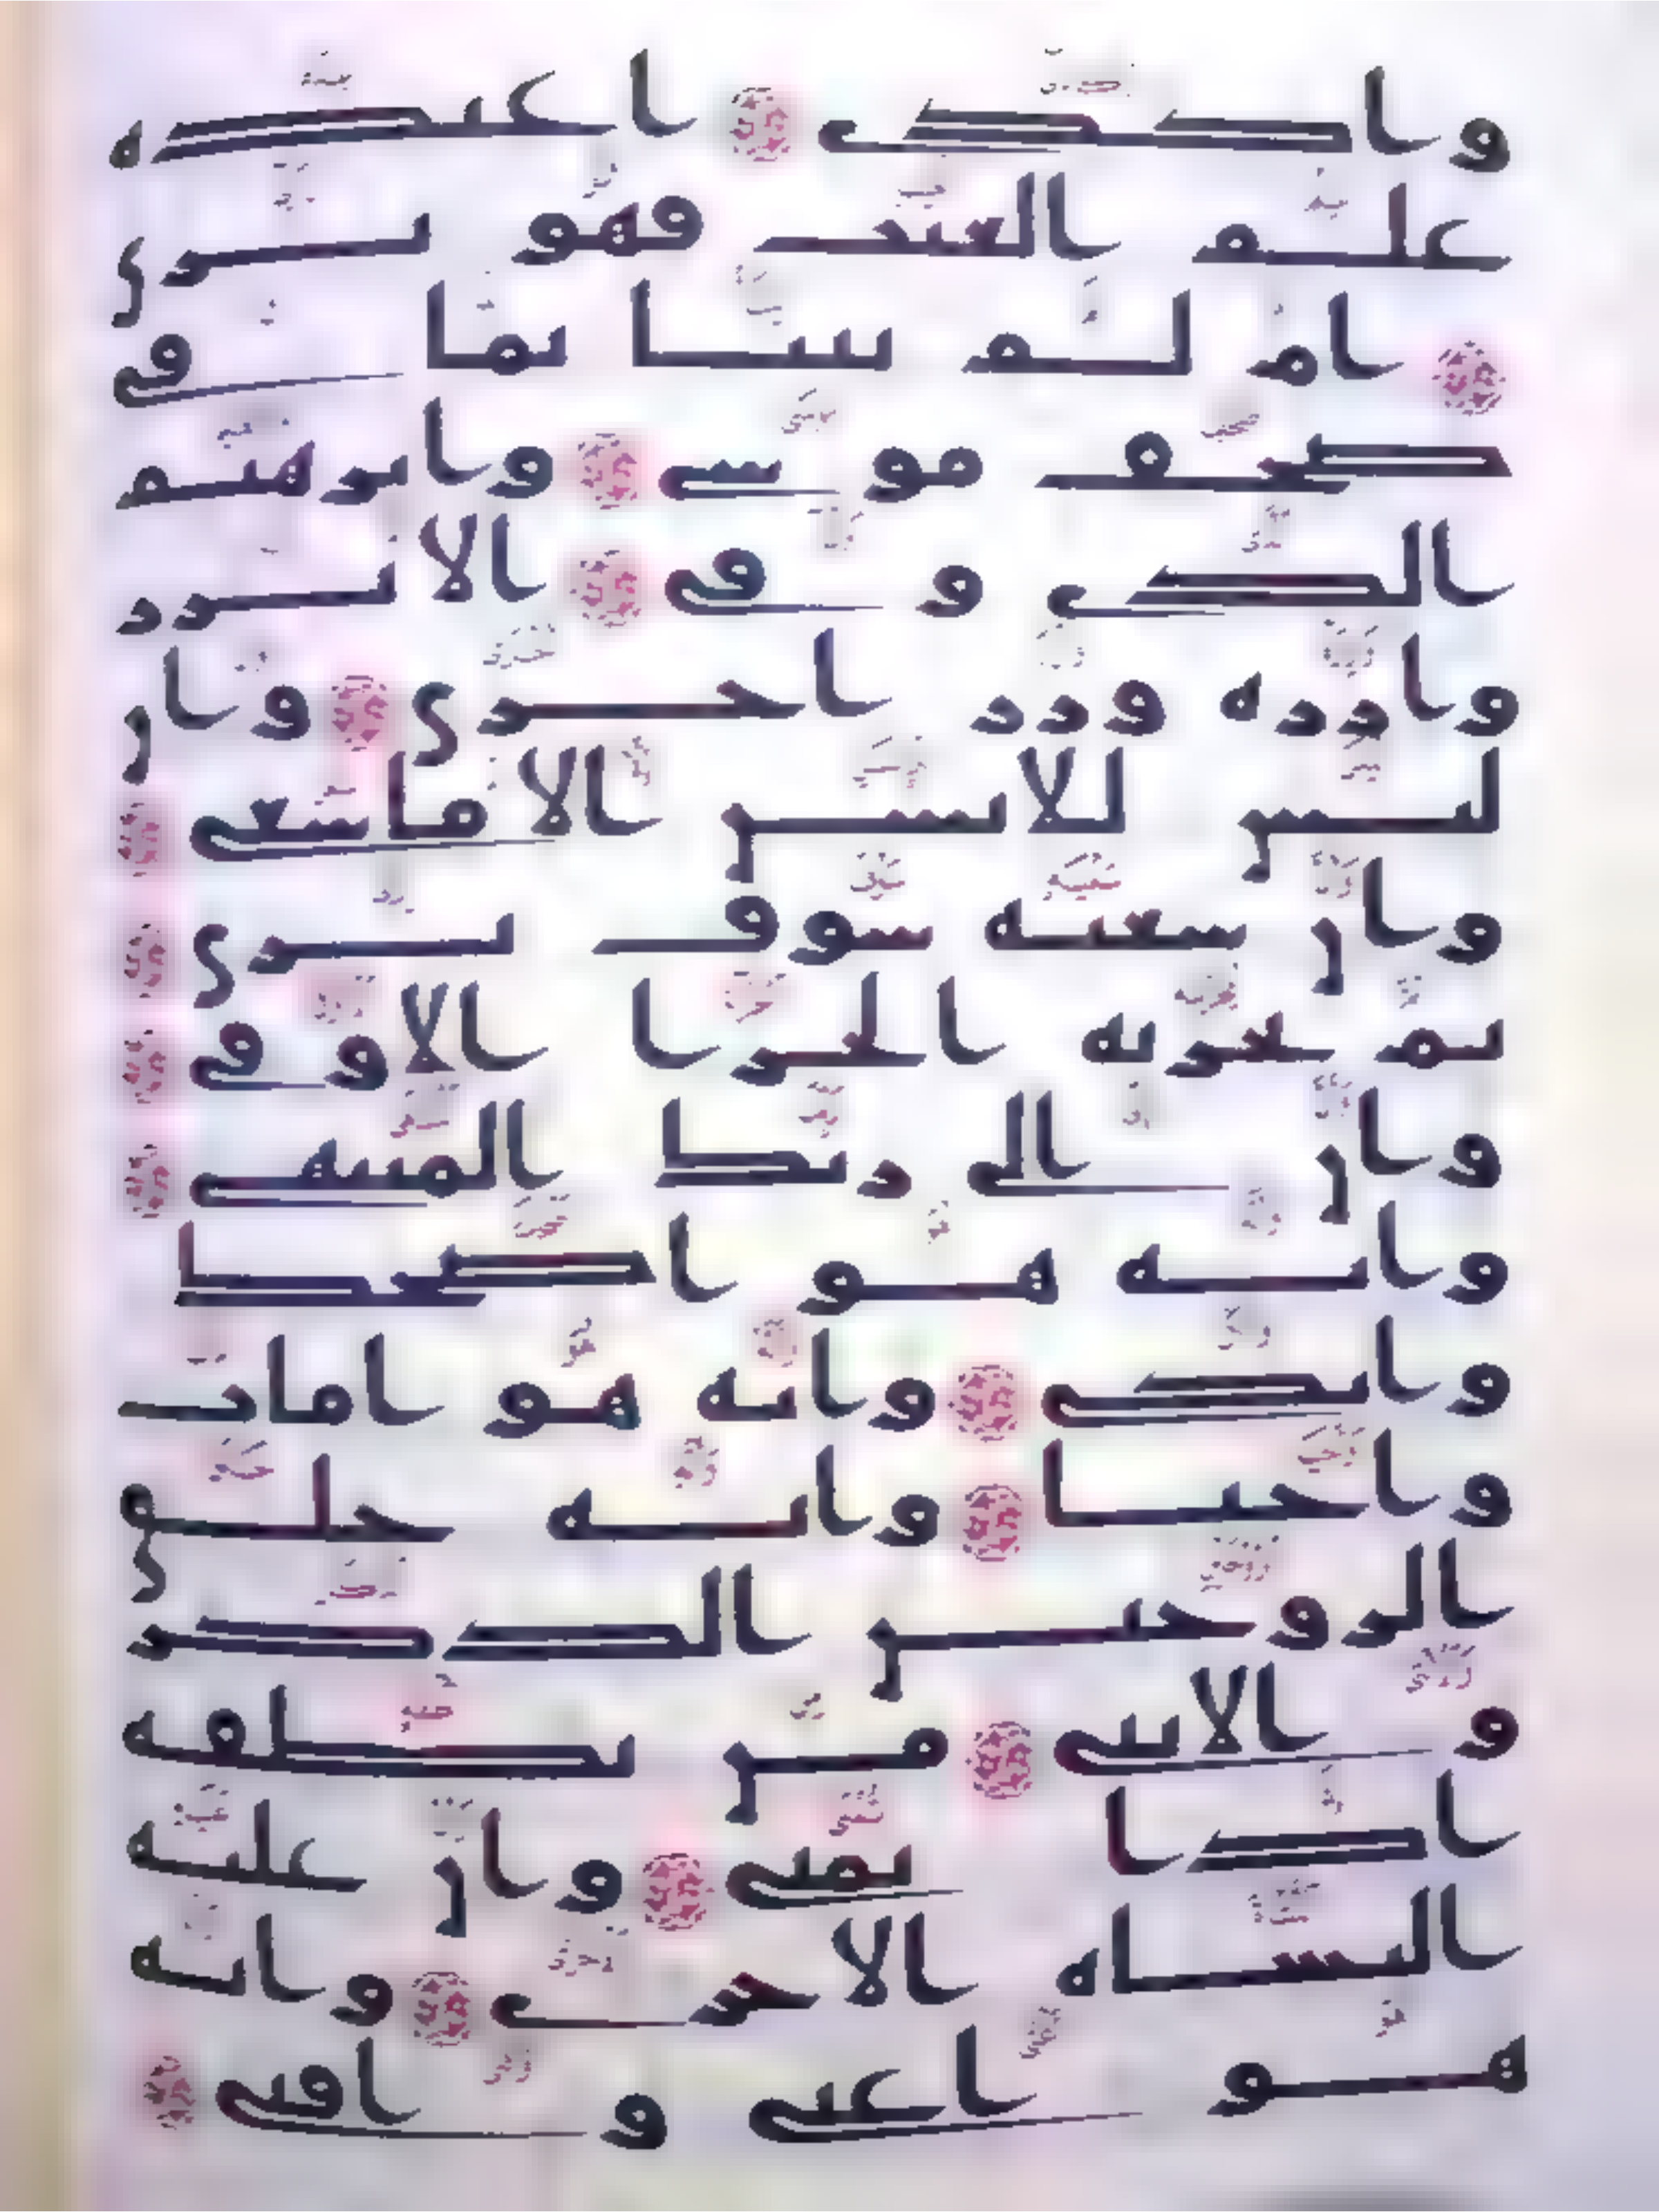 واكدى اعنده
علم الغيب فهو يرى
ام لم ينبا بما في
صحف موسى وابرهيم
الذى وفى الا تزر
وازره وزر اخرى وان
ليس للانسن الا ما سعى
وان سعيه سوف يرى
ثم يجزيه الجزا الاوفى
وان الى ربك المنتهى
وانه هو اضحك
وابكى وانه هو امات
واحيا وانه خلق
الزوجين الذكر
والانثى من نطفه
اذا تمنى وان عليه
النشاه الاخرى وانه
هو اغنى واقنى